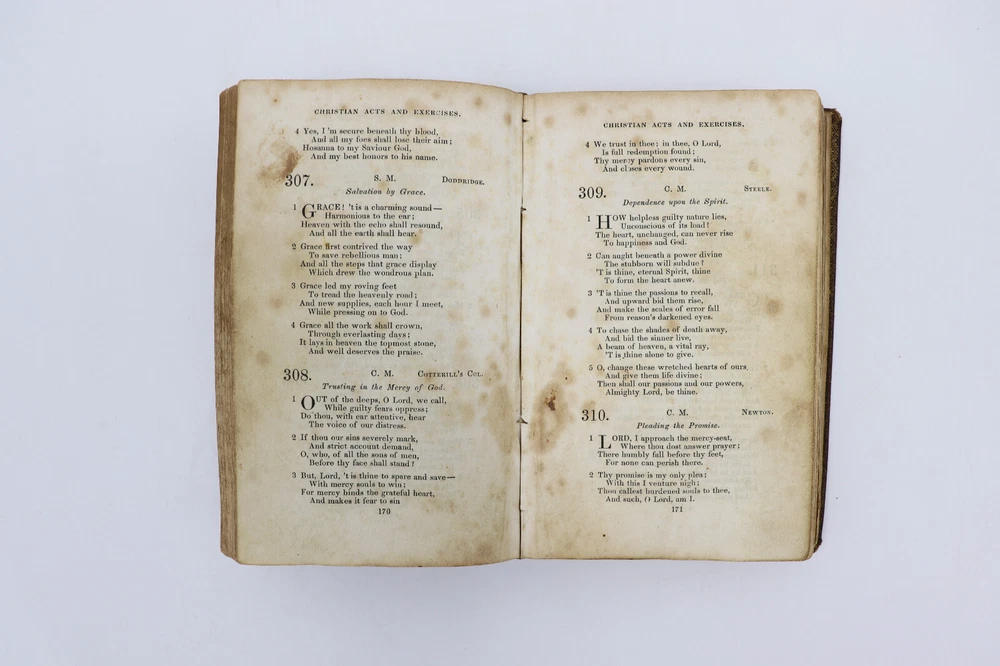 CHRISTIAN ACTS AND EXERCISES.
4 Yes, I 'm secure beneath thy blood,
And all my foes shall lose their aim;
Hosanna to my Saviour God,
And my best honors to his name.
307. S. M. DODDRIDGE.
Salvation by Grace.
1 GRACE! 't is a charming sound—
Harmonious to the ear;
Heaven with the echo shall resound,
And all the earth shall hear.
2 Grace first contrived the way
To save rebellious man;
And all the steps that grace display
Which drew the wondrous plan.
3 Grace led my roving feet
To tread the heavenly road;
And new supplies, each hour I meet,
While pressing on to God.
4 Grace all the work shall crown,
Through everlasting days;
It lays in heaven the topmost stone,
And well deserves the praise.
308. C. M. COTTERILL'S COL.
Trusting in the Mercy of God.
1 OUT of the deeps, O Lord, we call,
While guilty fears oppress;
Do thou, with ear attentive, hear
The voice of our distress.
2 If thou our sins severely mark,
And strict account demand,
O, who, of all the sons of men,
Before thy face shall stand?
3 But, Lord, 't is thine to spare and save—
With mercy souls to win;
For mercy binds the grateful heart,
And makes it fear to sin
170
CHRISTIAN ACTS AND EXERCISES.
4 We trust in thee; in thee, O Lord,
Is full redemption found;
Thy mercy pardons every sin,
And closes every wound.
309. C. M. STEELE.
Dependence upon the Spirit.
1 HOW helpless guilty nature lies,
Unconscious of its load!
The heart, unchanged, can never rise
To happiness and God.
2 Can aught beneath a power divine
The stubborn will subdue?
'T is thine, eternal Spirit, thine
To form the heart anew.
3 'T is thine the passions to recall,
And upward bid them rise,
And make the scales of error fall
From reason's darkened eyes.
4 To chase the shades of death away,
And bid the sinner live,
A beam of heaven, a vital ray,
'T is thine alone to give.
5 O, change these wretched hearts of ours,
And give them life divine;
Then shall our passions and our powers,
Almighty Lord, be thine.
310. C. M. NEWTON.
Pleading the Promise.
1 LORD, I approach the mercy-seat,
Where thou dost answer prayer;
There humbly fall before thy feet,
For none can perish there.
2 Thy promise is my only plea;
With this I venture nigh;
Thou callest burdened souls to thee,
And such, O Lord, am I.
171